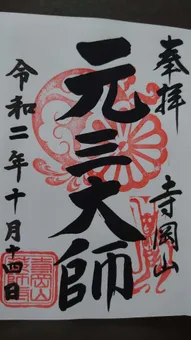 奉拝
寺岡山
元三大師
令和二年十月十四日